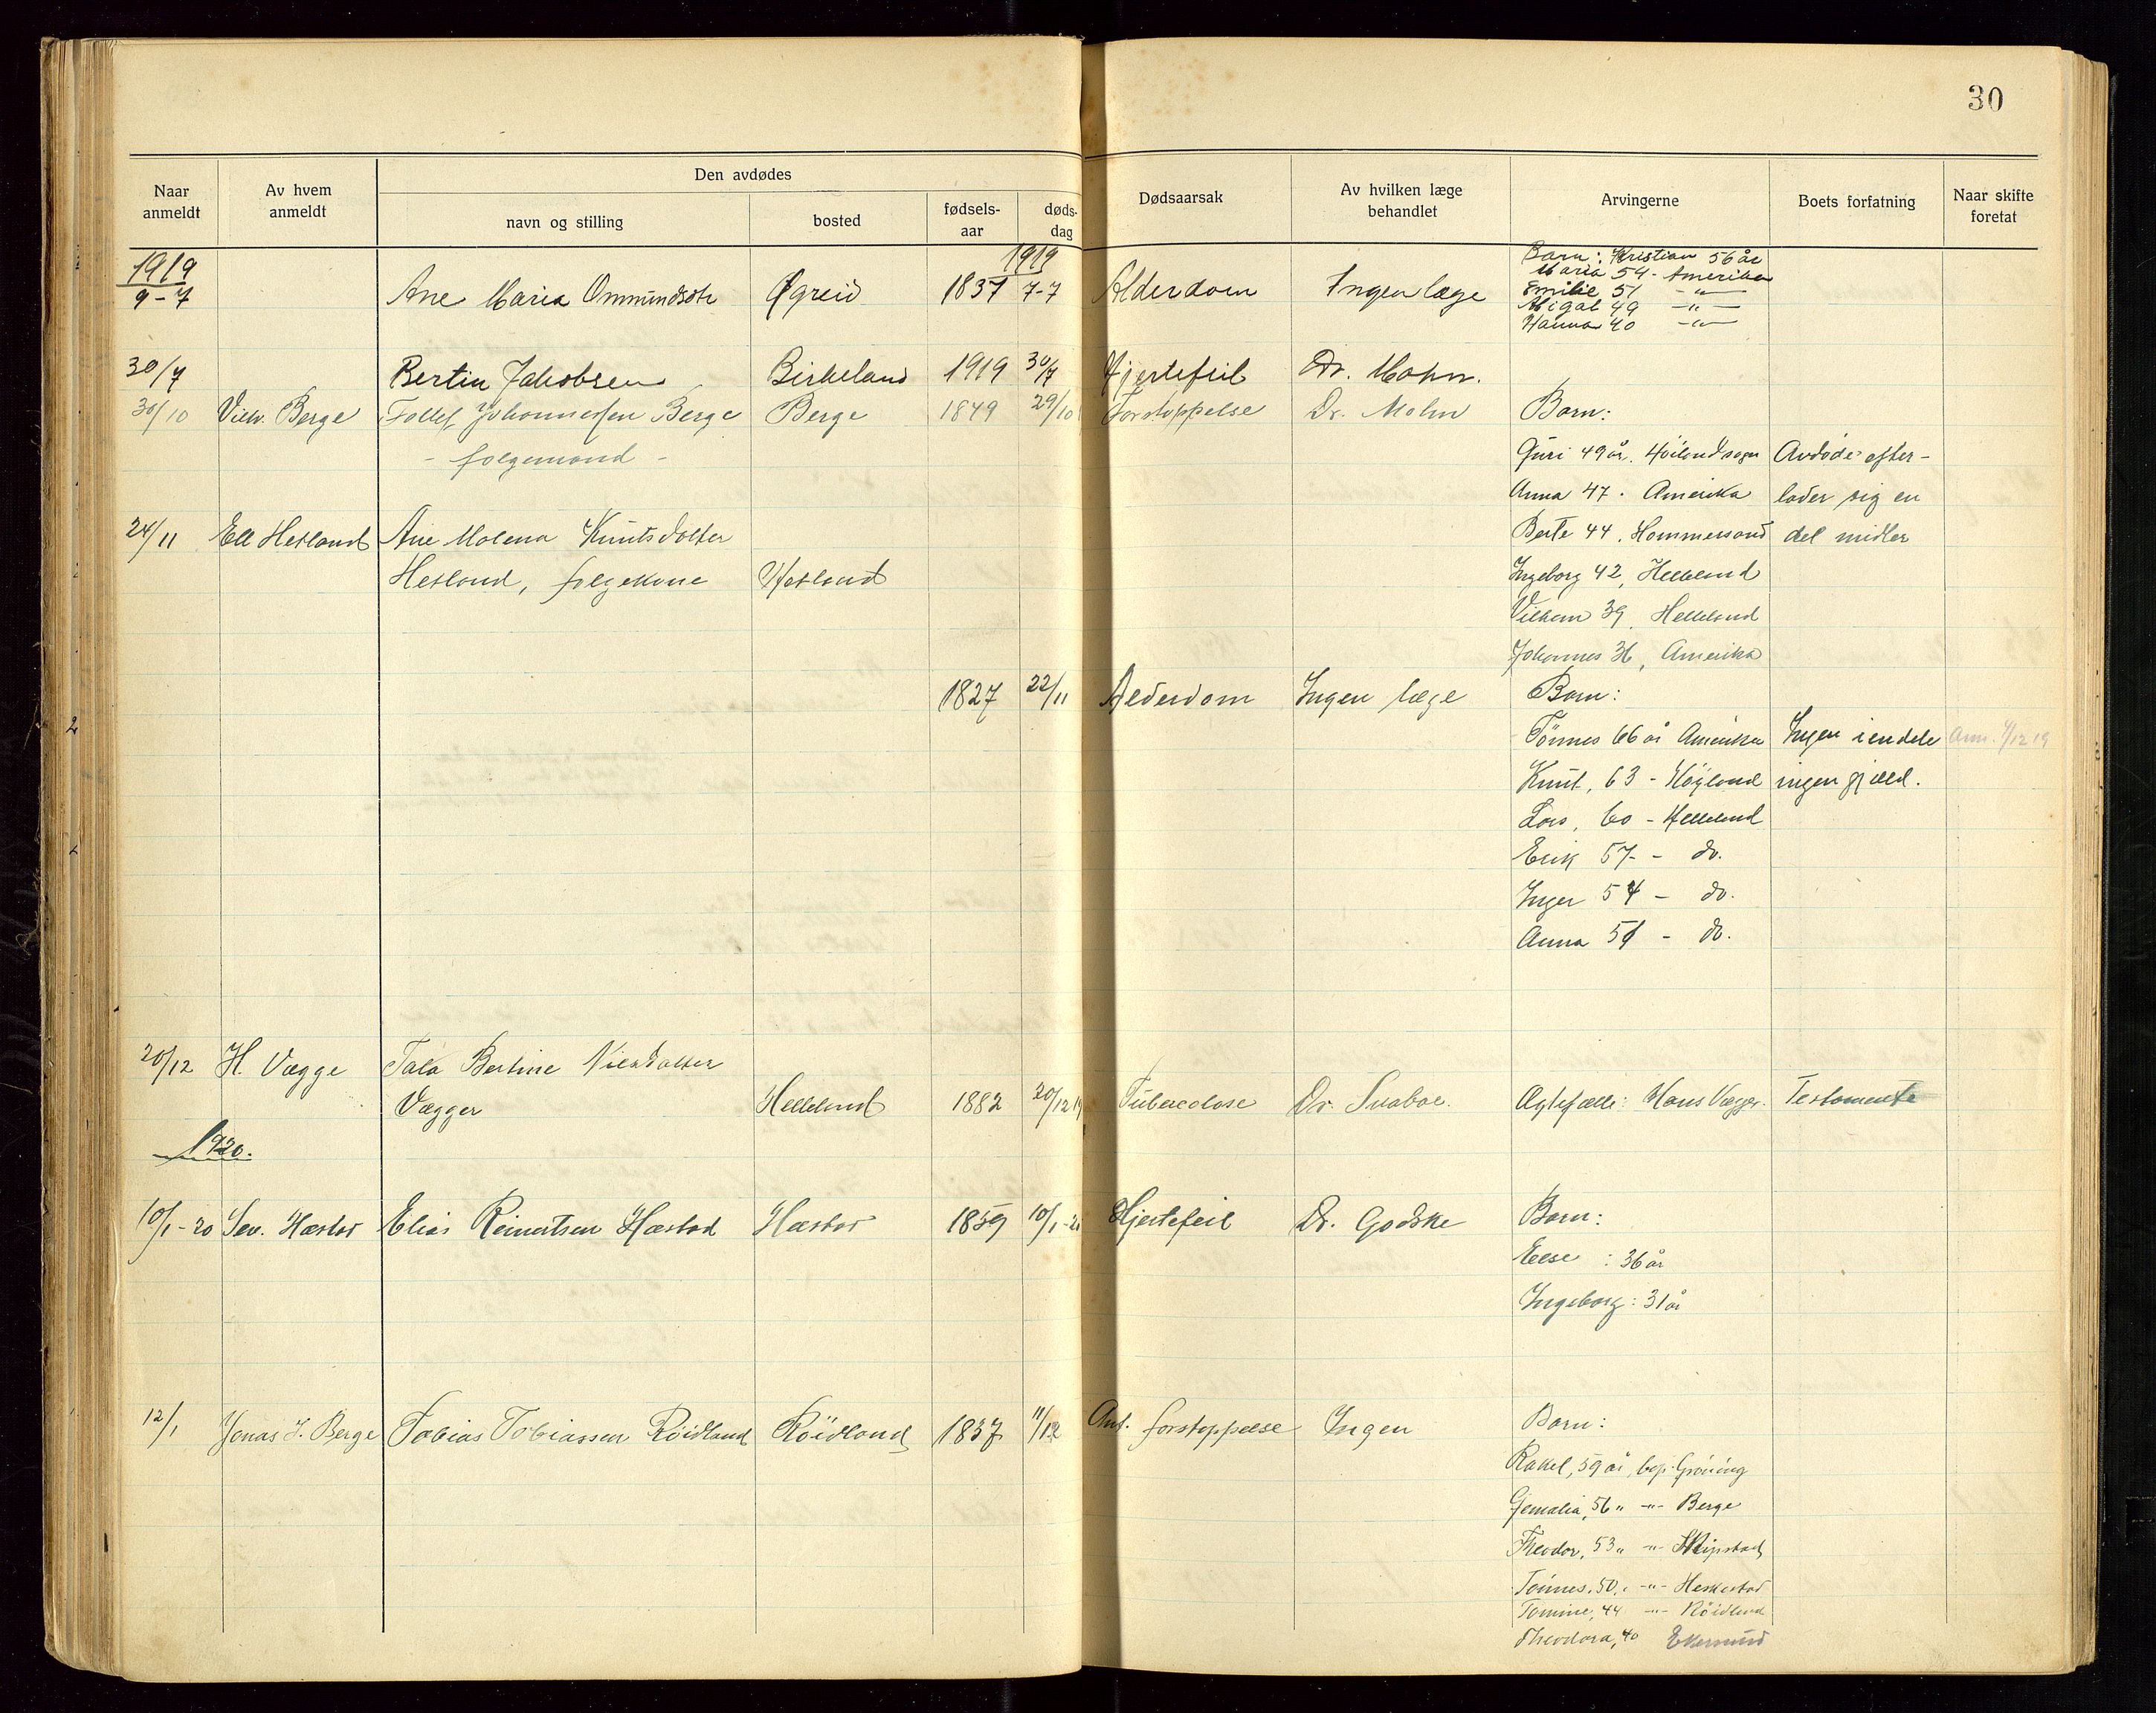 30
Naar anmeldt
Av hvem anmeldt
Den avdødes
navn og stilling
bosted
fødsels-aar
døds-dag
Dødsaarsak
Av hvilken læge behandlet
Arvingerne
Boets forfatning
Naar skifte foretat
1919 1919
9-7 Ane Maria Ommundsdtr Øgreid 1837 7-7 Alderdom Ingen læge Barn: Kristian 56 år
Maria 54 - Amerika
Emilie 51 -"-
Abigal 49 -"-
Hanna 40 -"-
30/7 Bertin Jakobsen Birkeland 1919 30/7 Hjertefeil Dr. Mohn.
30/10 Vilh. Berge Tollef Johannessen Berge Berge 1849 29/10 Forstoppelse Dr. Mohn Barn:
- folgemand -
Guri 49 år. Höilandsogn Avdöde efter-
Anna 47. Amerika lader sig en
24/11 Ell Hetland Ane Malena Knutsdatter Berte 44. Hommersand del midler
Hetland, folgekone Hetland Ingeborg 42, Helleland
39, Helleland
Johannes 36, Amerika
1827 22/11 Alderdom Ingen læge Barn:
Tönnes 66 år Amerika Ingen iendele Anm. 4/12 19
Knut, 63 - Höyland ingen gjæld.
Lars, 60 - Helleland
Erik 57 - do.
Inger 54 - do.
Anna 51 - do.
20/12 H. Vægge Tala Bertine Nilsdatter
Vægger Helleland 1882 20/12 19 Tuberculose Dr. Svaboe. Ægtefælle: Hans Vægger. Testamente
1920.
10/1-20 Sev. Hæstad Elias Reinertsen Hæstad Hæstad 1859 10/1-20 Hjertefeil Dr. Godske Barn:
Else : 36 år
Ingeborg : 31 år
12/1 Jonas J. Berge Tobias Tobiassen Röidland Röidland 1837 11/12 Ant. forstoppelse Ingen Barn:
Rakel, 59 år, Gröning
56 " -"- Berge
Theodor, 53 " -"- Skipstad
Tönnes, 50 " -"- Heskestad
Tomine, 44 -"- Röidland
Theodora, 40 Ekersund